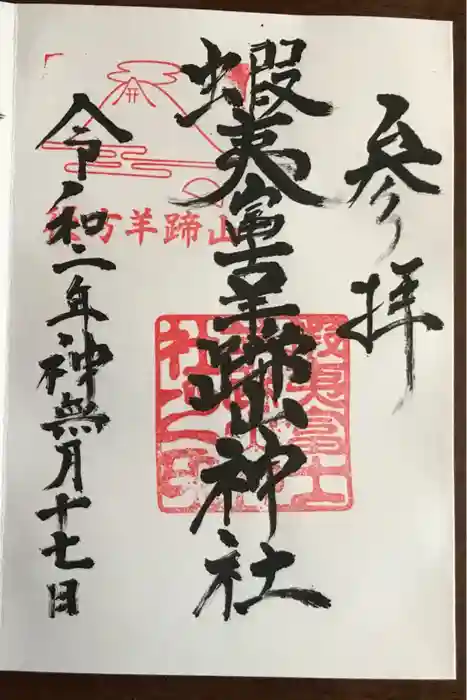 参拝
蝦夷富士羊蹄山神社
令和二年神無月十七日
後方羊蹄山
蝦夷富士
社之印